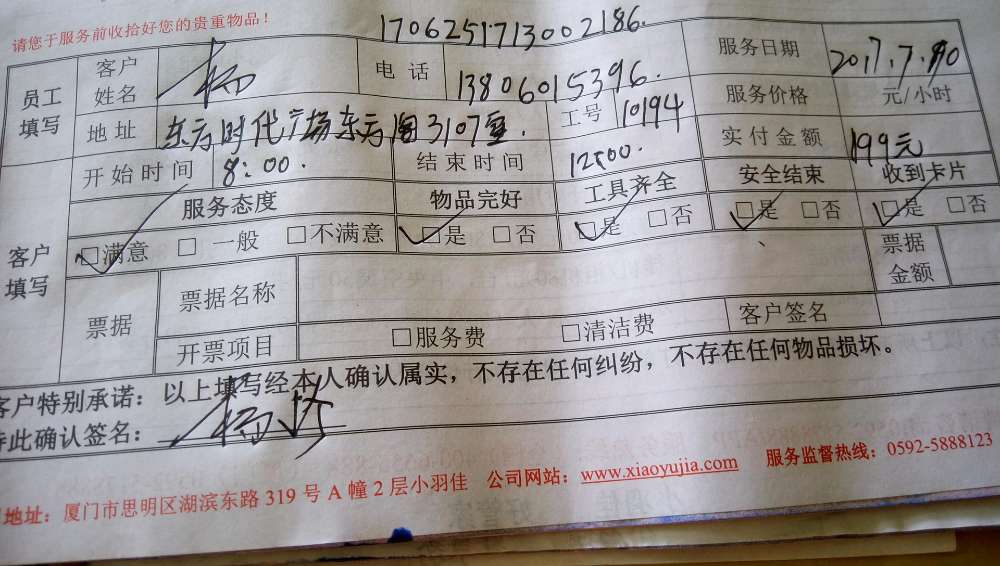 请您于服务前收拾好您的贵重物品！
1706251713002186.
员工填写 客户姓名 杨 电话 13806015396. 服务日期 2017.7.10
地址 东方时代广场东方阁3107室. 工号 10194 服务价格 元/小时
开始时间 8:00. 结束时间 12:00. 实付金额 199元
客户填写 服务态度 物品完好 工具齐全 安全结束 收到卡片
□满意 □一般 □不满意 □是 □否 □是 □否 □是 □否 □是 □否
票据 票据名称 票据金额
开票项目 □服务费 □清洁费 客户签名
客户特别承诺：以上填写经本人确认属实，不存在任何纠纷，不存在任何物品损坏。
特此确认签名： 杨
地址：厦门市思明区湖滨东路 319 号 A 幢 2 层小羽佳 公司网站：www.xiaoyujia.com 服务监督热线：0592-5888123